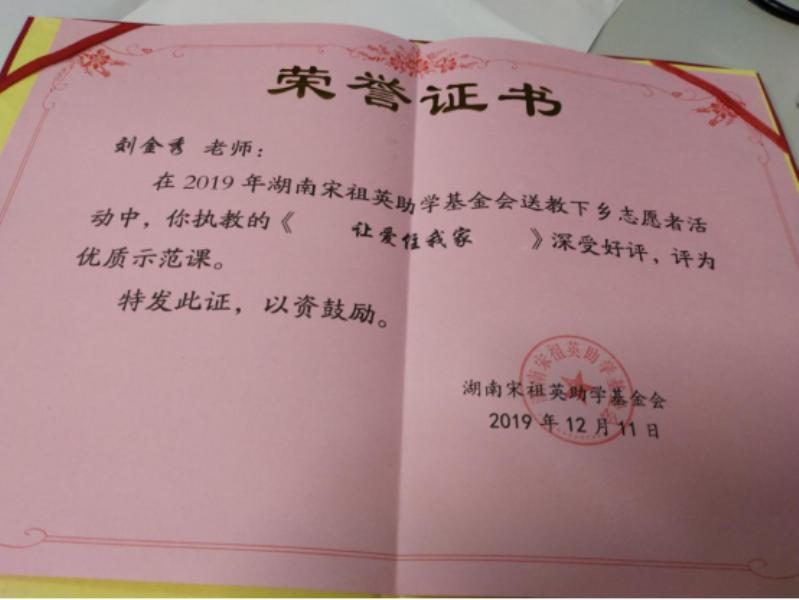 荣誉证书
刘金秀 老师：
在2019年湖南宋祖英助学基金会送教下乡志愿者活
动中，你执教的《 让爱住我家 》深受好评，评为
优质示范课。
特发此证，以资鼓励。
湖南宋祖英助学基金会
湖南宋祖英助学基金会
2019年12月11日